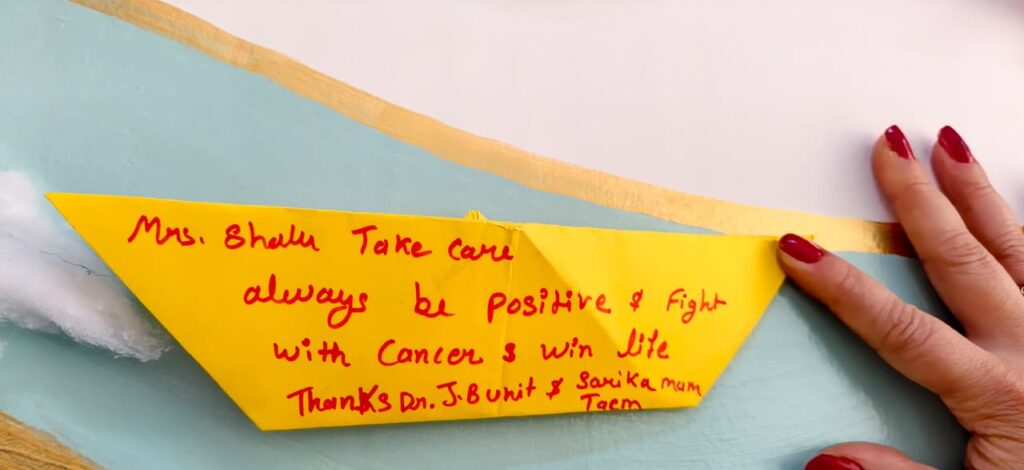 Mrs. Shalu Take care
always be positive & Fight
with Cancer & win life
Thanks Dr. J.B unit & Sarika mam
Taem